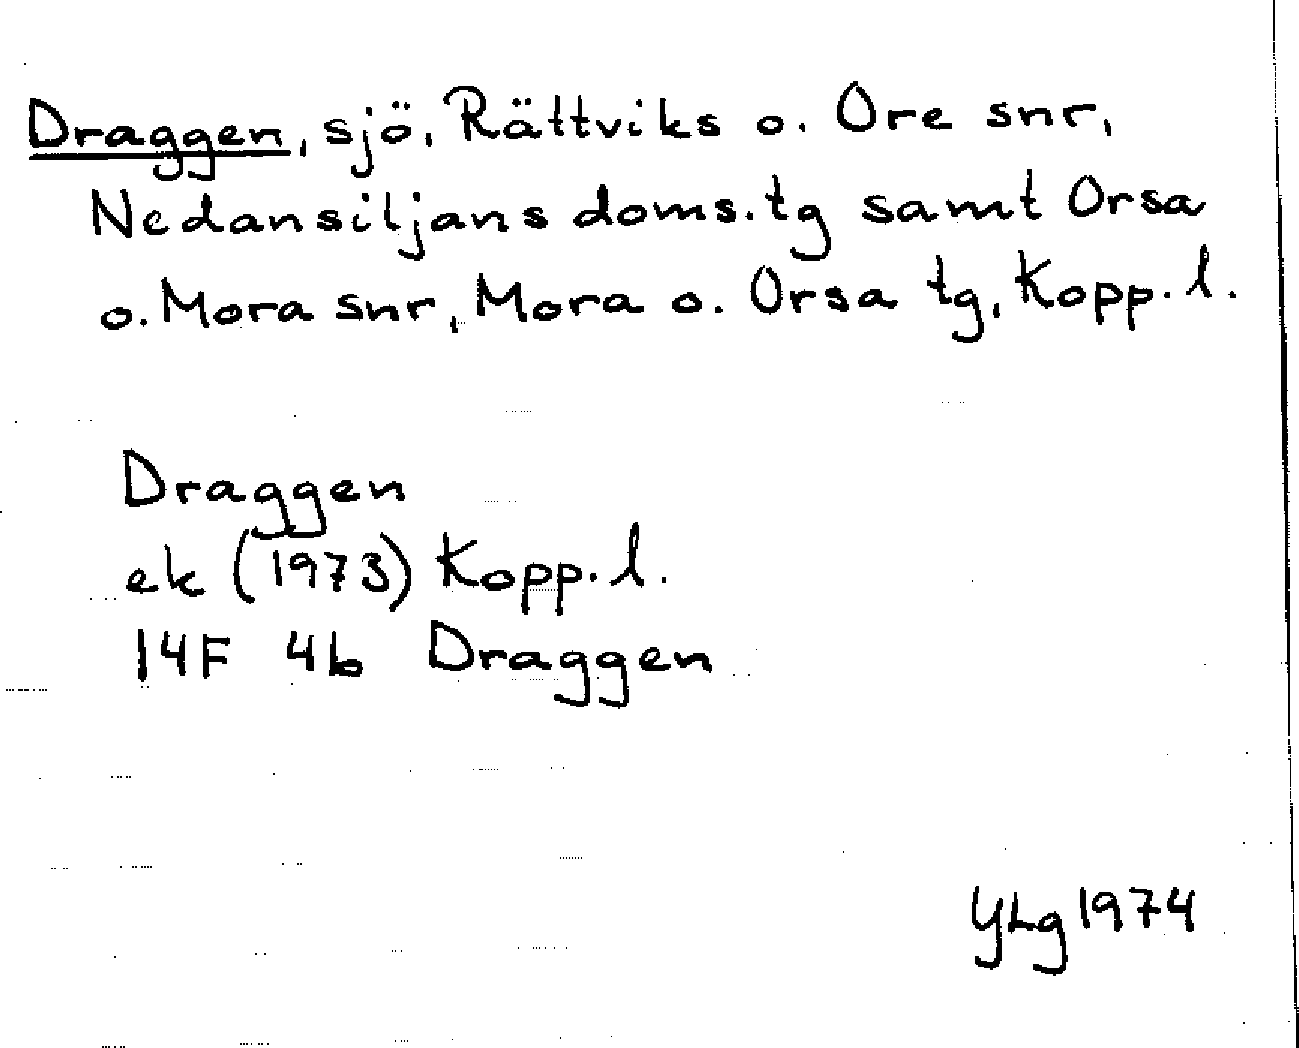 Draggen, sjö, Rättviks o. Ore snr,
Nedansiljans doms.tg samt Orsa
o. Mora snr, Mora o. Orsa tg, Kopp. l.
Draggen
ek (1973) Kopp. l.
14F 4b Draggen
YLg 1974